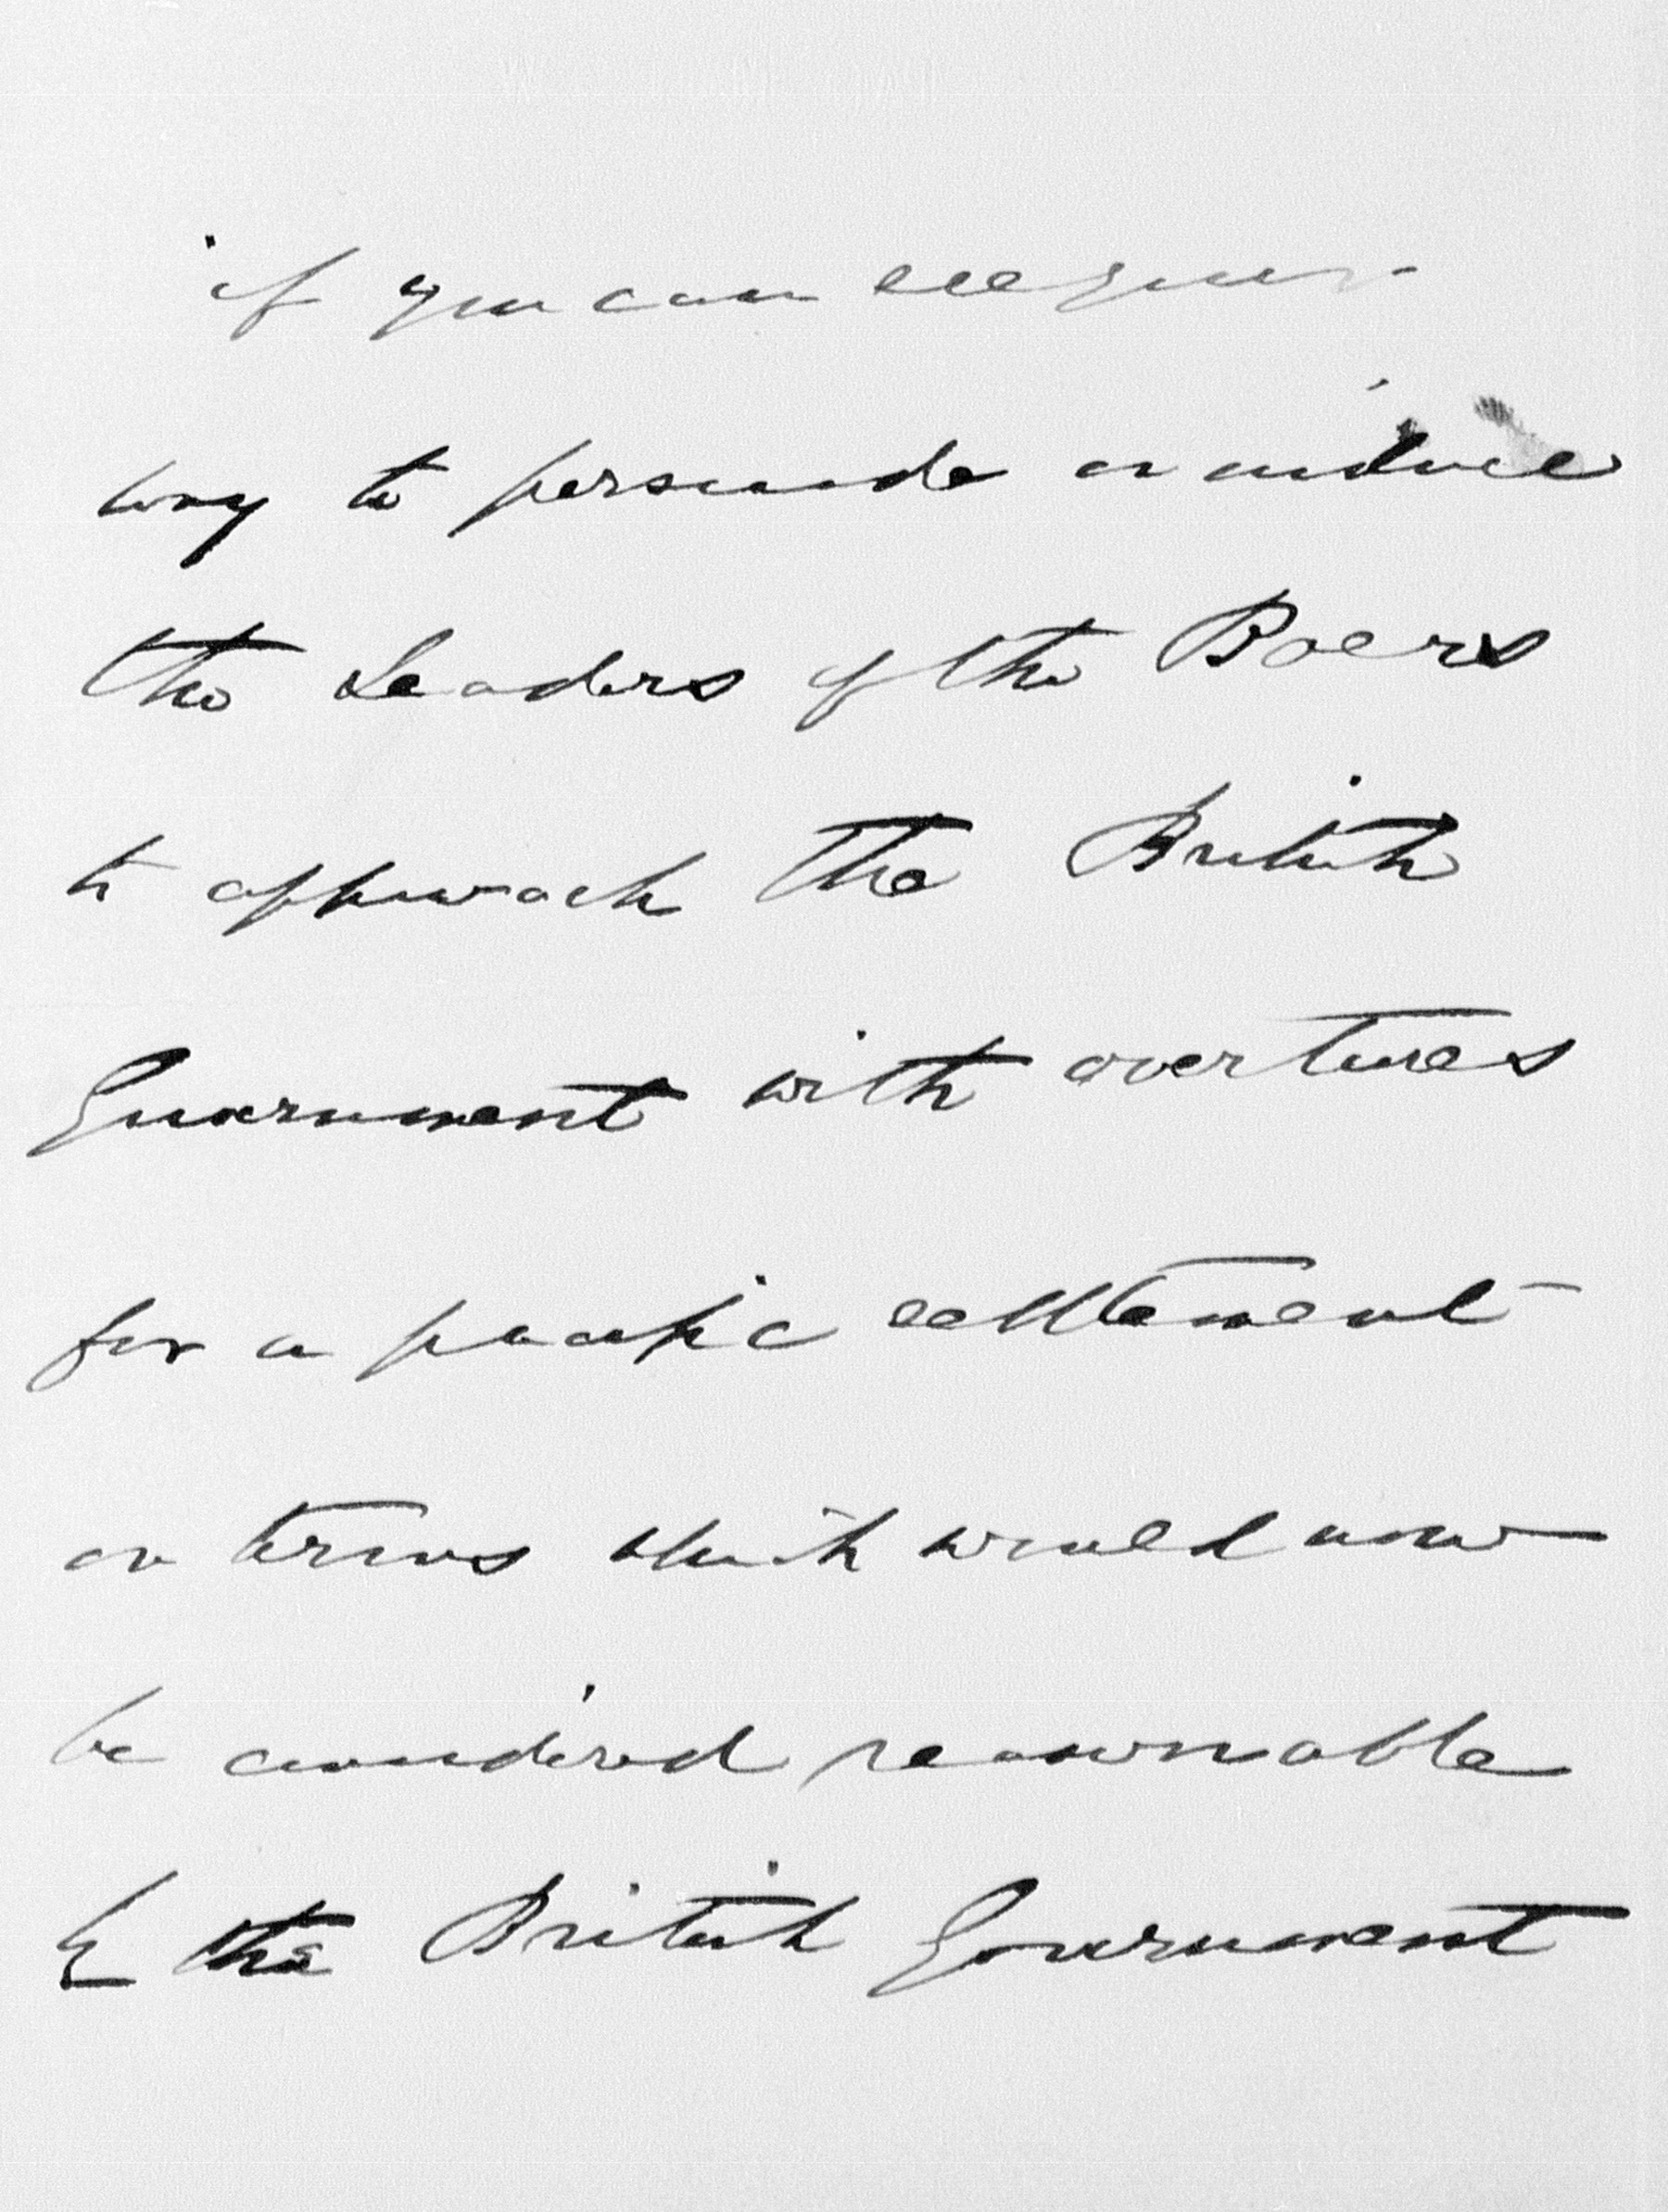 if you can see your
way to persuade or induce
the Leaders of the Boers
to approach the British
Government with overtures
for a pacific settlement
on terms which would now
be considered reasonable
by the British Government